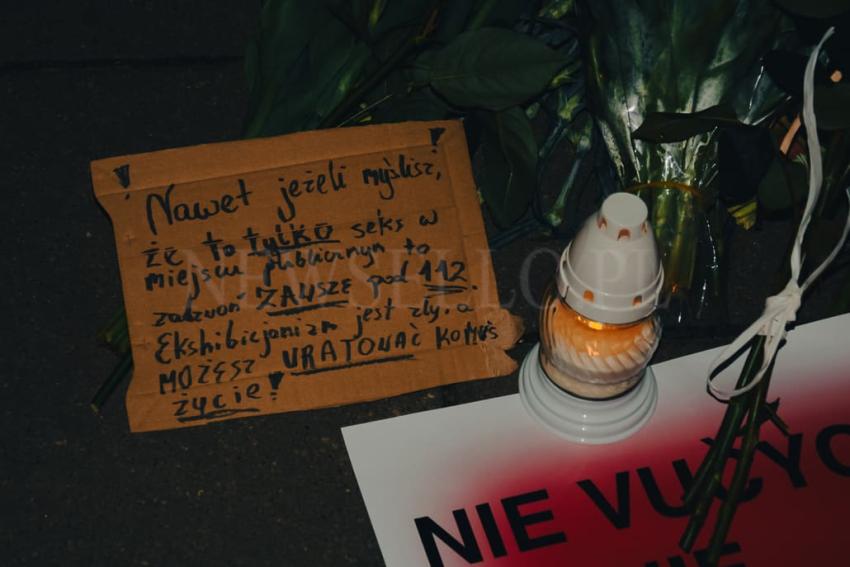 Nawet jeżeli myślisz,
że to tylko seks w
miejscu publicznym to
zadzwoń ZAWSZE pod 112.
Ekshibicjonizm jest zły, a
MOŻESZ URATOWAĆ KOMUŚ
życie!
NEWSELLO.PL
NIE